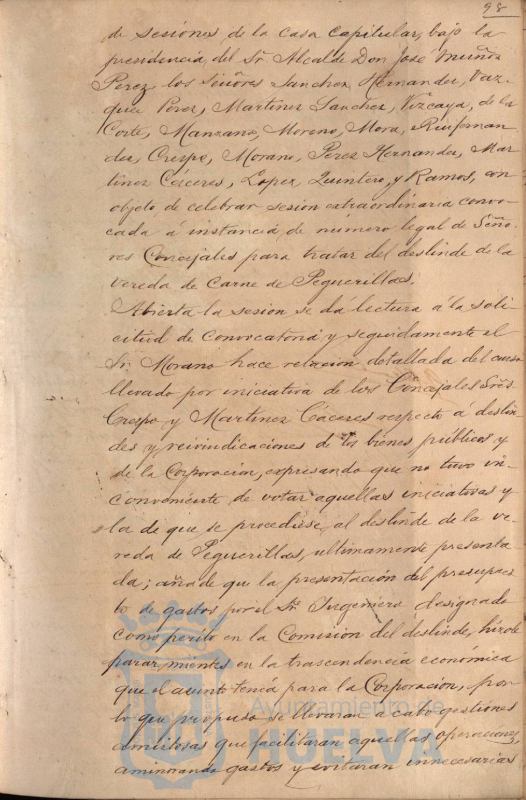 98
de sesiones, de la casa Capitular, bajo la
presidencia del Sr. Alcalde Don José Muñoz
Perez, los Señores Sanchez, Hernandez, Vaz-
quez Perez, Martinez Sanchez, Vizcaya, de la
Corte, Manzano, Moreno, Mora, Ruifernan
dez, Crespo, Morano, Perez Hernandez, Mar
tinez Cáceres, Lopez, Quintero, y Ramos, con
objeto de celebrar sesión extraordinaria convo-
cada a instancia de número legal de Seño-
res Concejales para tratar del deslinde de la
vereda de Carne de Peguerillas.
Abierta la sesión se dá lectura a la soli-
citud de Convocatoria y seguidamente el
Sr. Morano hace relación detallada del curso
llevado por iniciativa de los Concejales Sres
Crespo y Martinez Cáceres respecto a deslin-
des y reivindicaciones de los bienes públicos y
de la Corporación, expresando que no tuvo in-
conveniente de votar aquellas iniciativas y
la de que se procediese al deslinde de la ve-
reda de Peguerillas, ultimamente presenta
da; añade que la presentación del presupues
to de gastos por el Sr. Ingeniero designado
como perito en la Comision del deslinde, hizole
parar mientes en la trascendencia económica
que el asunto tenía para la Corporación, por
lo que propuso se llevaran a cabo gestiones
amistosas que facilitaran aquellas operaciones,
aminorando gastos y evitaran innecesarias
Ayuntamiento de
HUELVA